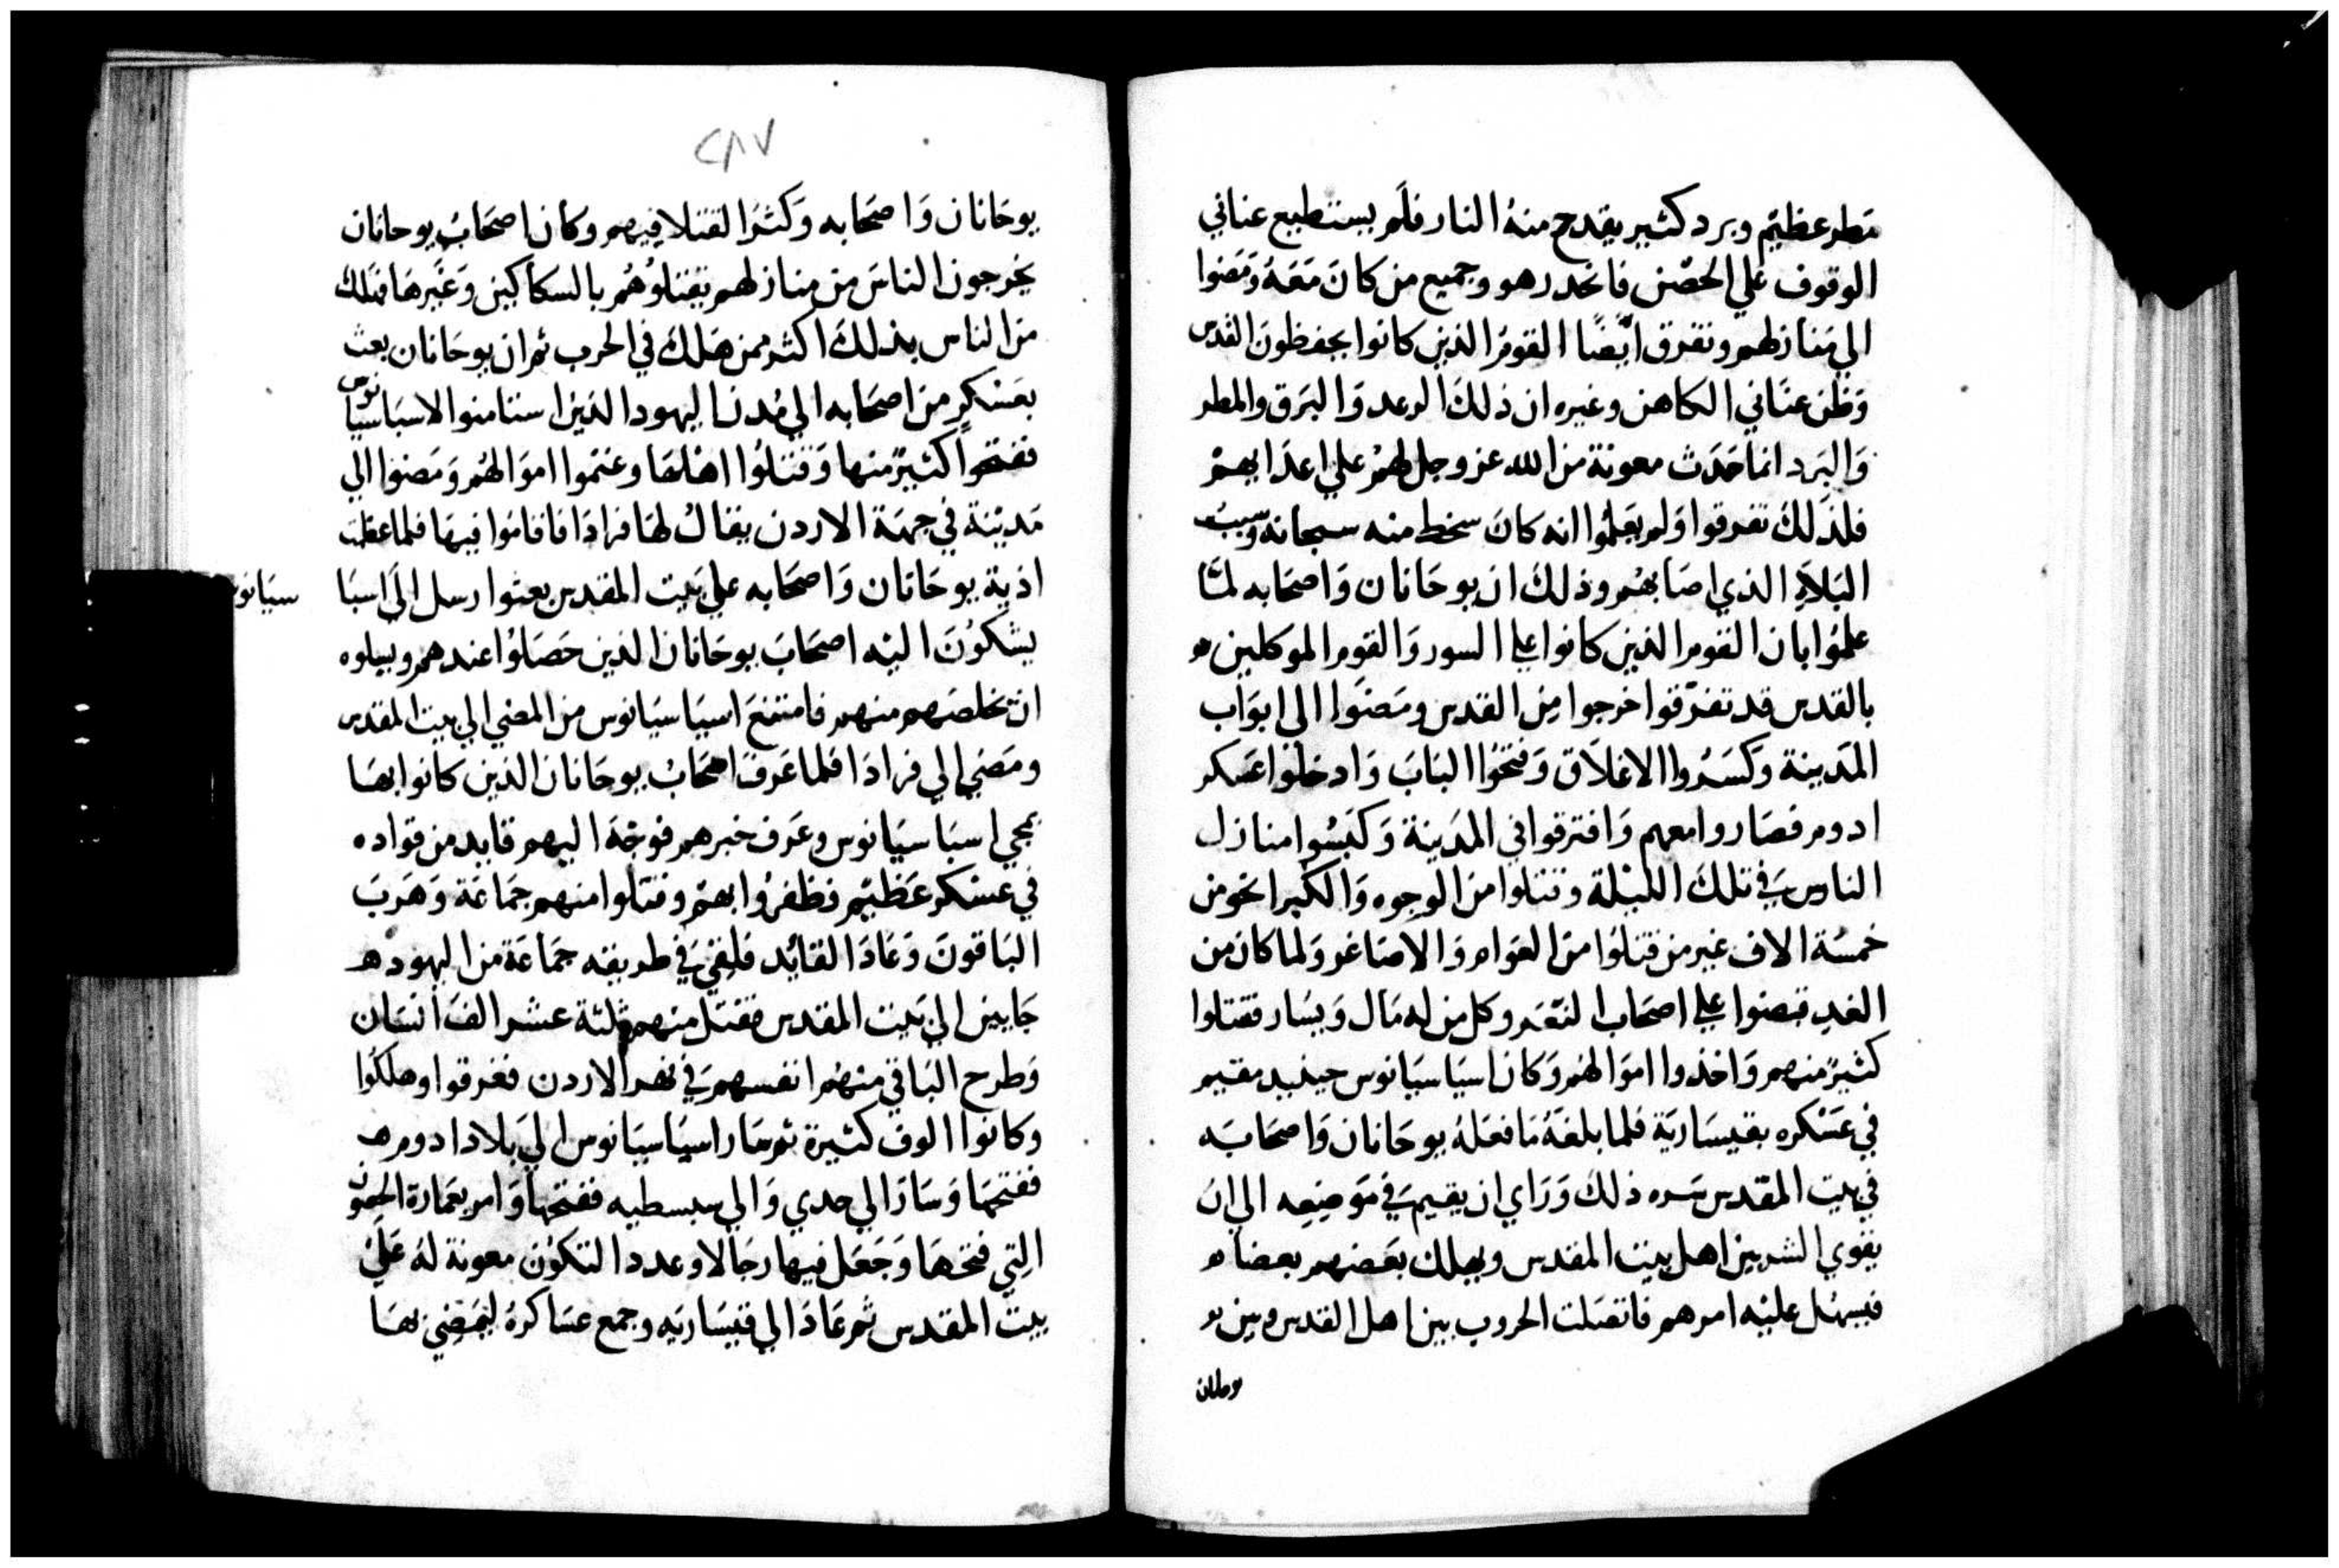 مَطر عظيم وبرد كثير يقدح منهُ النار فلَم يستطيع عناني
الوقوف علي الحصْن فانحدر هو وجميع من كانَ مَعَهُ وَمَضوا
الي مَنازلهم وتفرق ايضًا القومُ الذين كانوا يحفظونَ القدس
وَظن عنَاني الكاهن وغيره ان ذلكَ الرعد وَالبَرق والمطر
وَالبَرد انما حَدَث معونة من الله عز وجل لهُمْ علي اعدَايهمْ
فلذَلكَ تفرقوا وَلم يعَلمُوا انه كانَ سخط منه سبحانه وسببُ
البَلاَءِ الذي اصَابهُم وذلكَ ان يوحَانان وَاصحَابه لمَّا
علمُوا بان القوم الذين كانوا علي السور وَالقوم الموكلين
بالقدس قد تفرّقوا خرجوا مِن القدس ومَضَوا الي ابوَاب
المَدينة وَكَسَرُوا الاغلاَق وَفتحُوا البَابَ وَادخلوا عَسكر
ادوم فصَاروا معهم وَافترقوا في المدَينة وَكبَسُوا منازل
الناس في تلكَ الليْلة وقتلوا منَ الوجوه وَالكبرا نحو من
خمسَة الاف غير من قتلوُا منَ العوَام وَالاصَاغر وَلما كان من
الغدِ قبضوا علي اصحَاب النعَم وكل من له مَال وَيسَار فقتلوا
كثيرً منهم وَاخذوا اموَالهُم وَكان اسباسيَانوس حينيد مقيم
في عَسْكره بقيسَاريَة فلما بلغَهُ مَا فعَلهُ يوحَانان وَاصحَابَه
في بيت المقدس سَره ذلكَ وَرَاي ان يقيم في مَوضِعِه الي ان
يقوي الشر بين اهل بيت المقدس ويهلك بعَضهم بعضا
فيسهُل عليْه امرهم فاتصَلت الحروب بين اهل القدس وبين
يوحانان
٢٨٧
يوحَانان وَاصحَابه وَكثرُ القتلا فيهم وكان اصحَابُ يوحانان
يخرجون الناسَ من منازلهم يقتلوُهُم بالسكاكين وَغَيرهَا فهَلكَ
منَ الناس بذلكَ اكثر ممن هَلكَ في الحرب ثم ان يوحَانان بعث
بعَسْكرٍ منَ اصحَابه الي مُدن اليهود الذين استامنوا لاسبَاسيَا
نوس
ففتحوا كثيرً منها وَقتلوُا اهْلهَا وغنَموا اموَالهُم وَمَضوا الي
مَديْنة في جهَة الاردن يقالُ لهَا فرادَا فاقامُوا فيهَا فلما عظمت
اذية يوحَانان وَاصحَابه علي بَيت المقدس بعثوا رسل الَي اسبَا
سيَانوس
يشكوُنَ اليْه اصحَابَ يوحَانان الذين حَصَلوُا عندهم ويسلوه
ان يخلصَهم منهم فامتنعَ اسباسيَانوس من المضي الي بيت المقدس
ومَضي الي فرادَا فلما عَرفَ اصحَابُ يوحَانان الذين كانوا بهَا
بمجي اسبَاسيَانوس وعَرف خبرهم فوجّه اليهم قايد من قواده
في عسْكر عَظيْم فظفرُوا بهمْ وقتلوا منهم جمَاعَة وَهَربَ
البَاقونَ وَعَادَ القايُد فلقيَ في طريقه جمَاعَة من اليهود
جَايين الي بَيت المقدس فقتلَ منهم ثلثة عشر الفَ انسَان
وَطرح البَاقي منهُم انفسهم في نهر الاردن فغرقوا وهلكوُا
وكانوا الوف كثيرة ثم سَار اسبَاسيَانوس الي بَلاد ادوم
ففتحهَا وَسَارَ الي حدي وَالي سبسطيه ففتحها وَامر بعَمَارة الحصون
التي فتحَهَا وَجَعَل فيها رجَالا وعددا لتكوُن معونة لهُ عَليْ
بيتَ المقدس ثم عَادَ الي قيسَاريَه وجمع عسَاكرهُ ليمَضِيْ بهَا